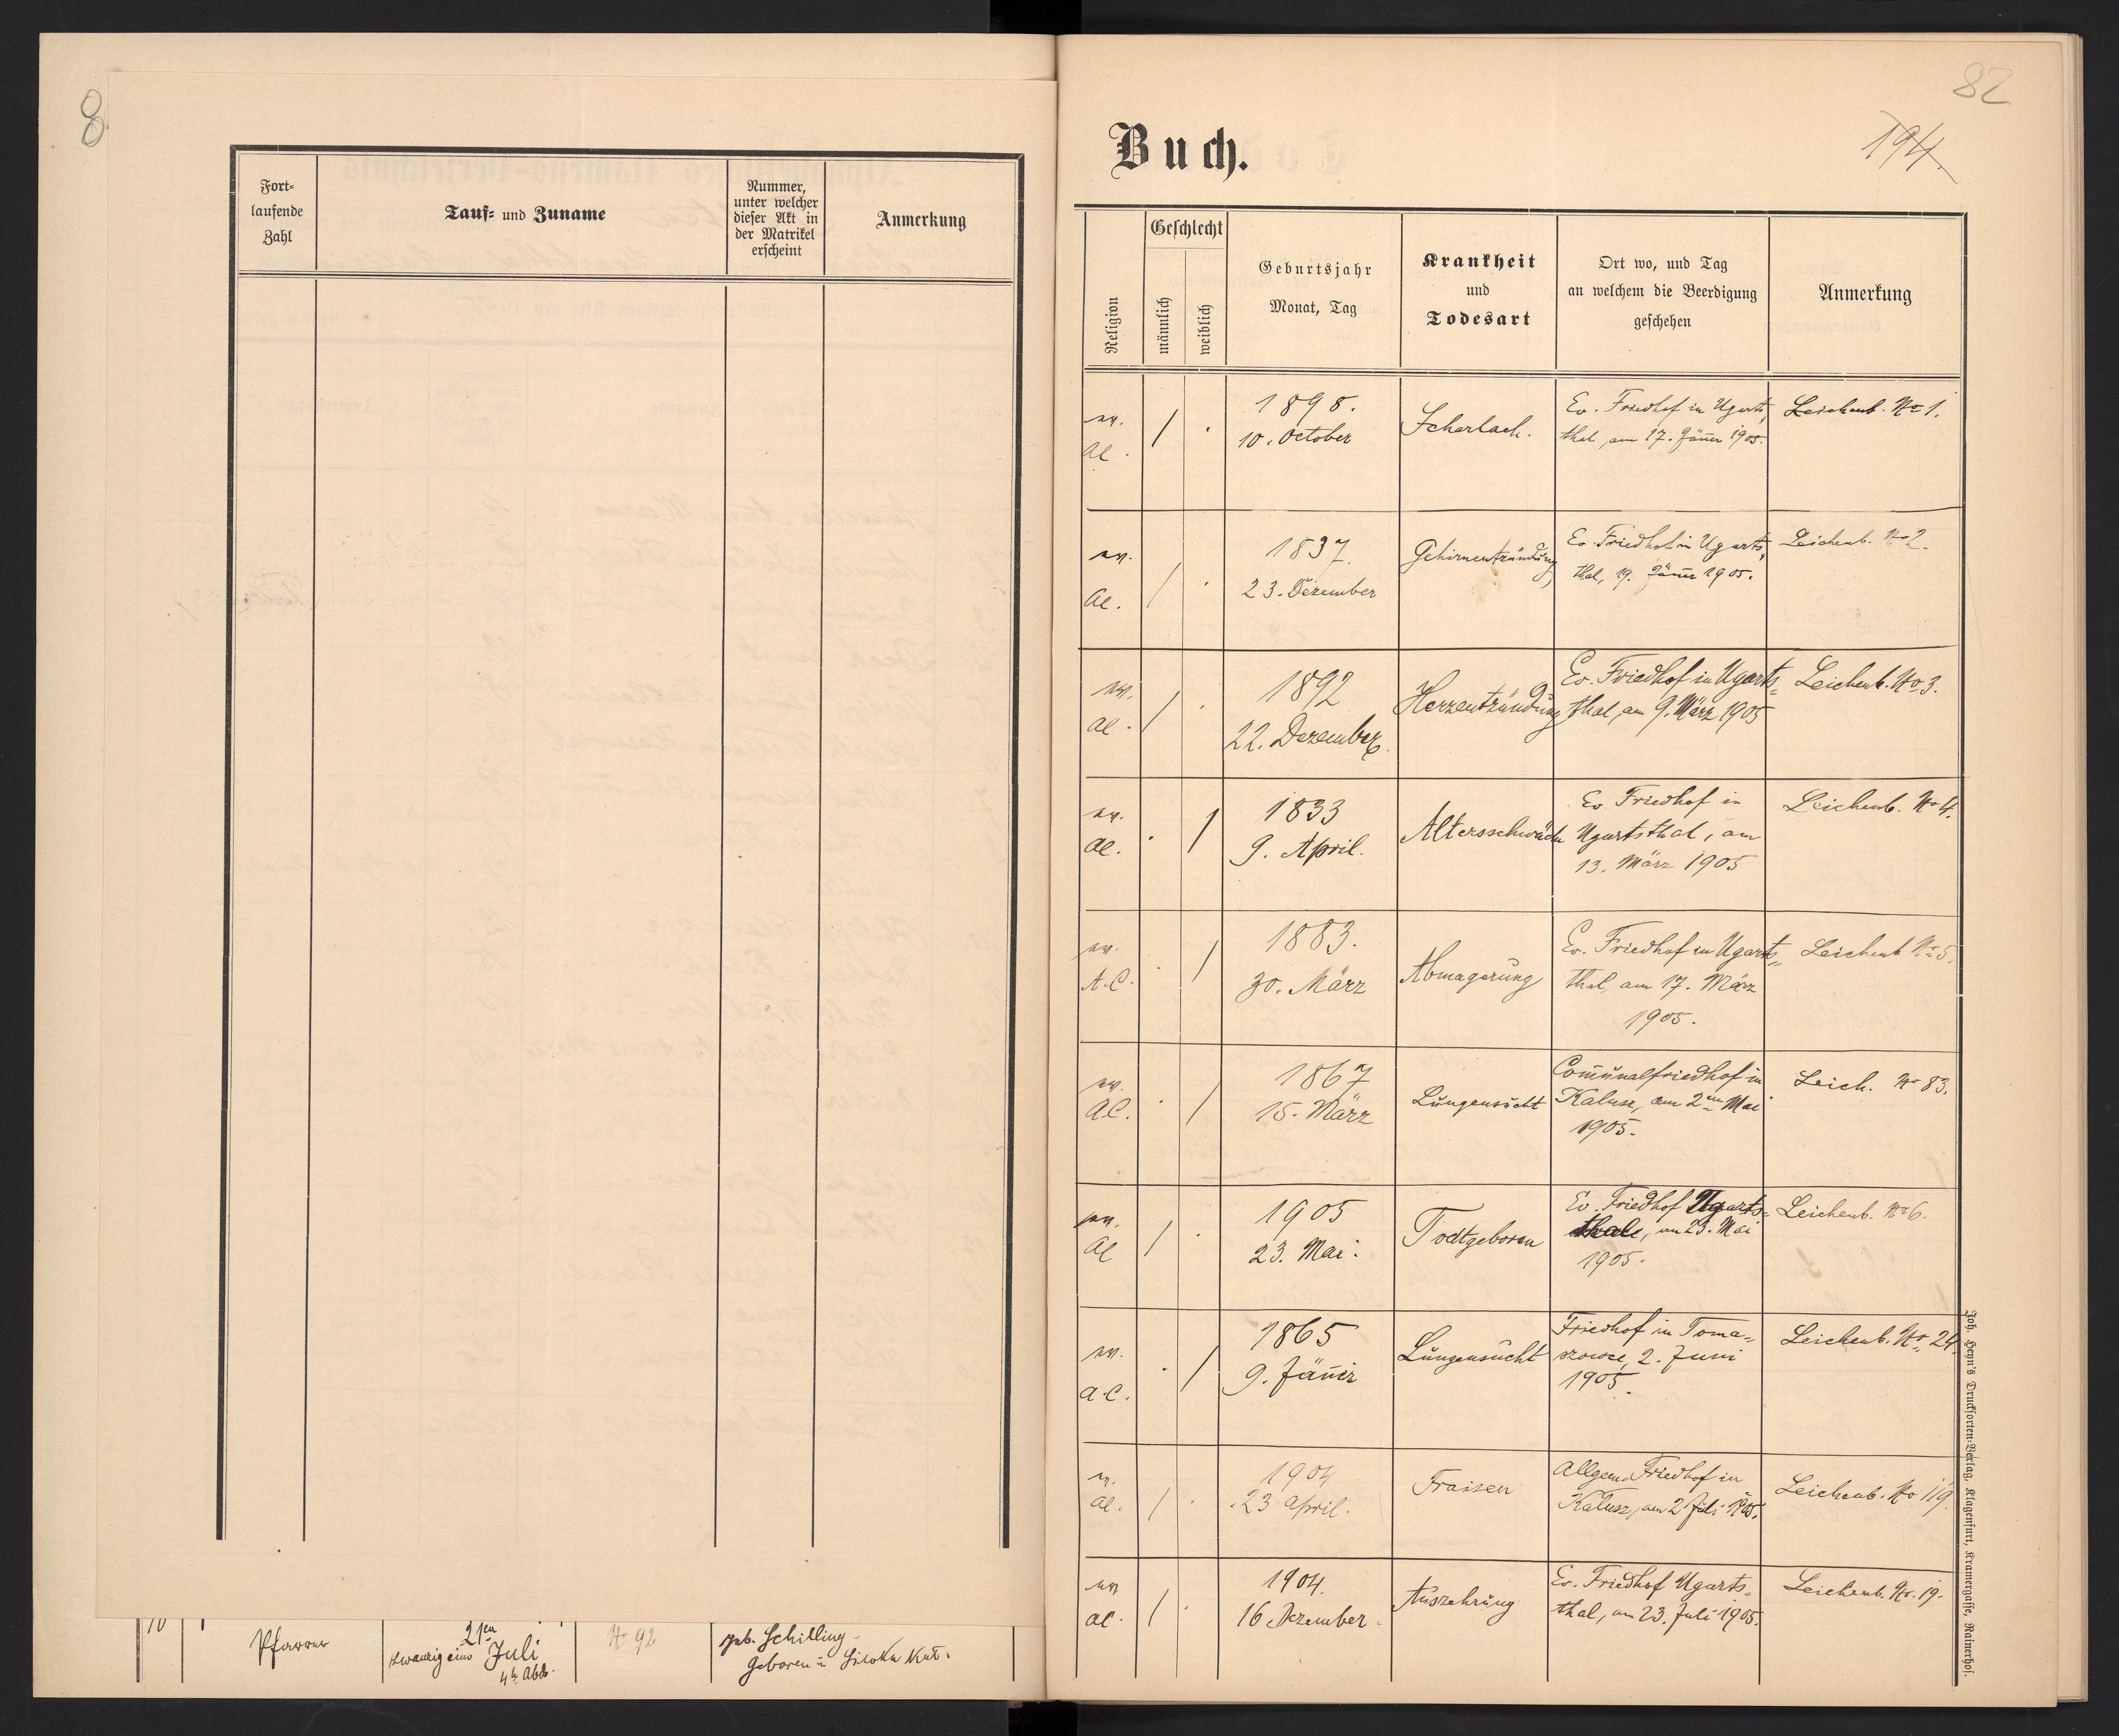 8
Fort-
laufende
Zahl
Tauf- und Zuname
Nummer,
unter welcher
dieser Akt in
der Matrikel
erscheint
Anmerkung
10
Pfarrer
21ten
zwanzig eins Juli
4h Abds.
No 92
geb. Schilling
Geboren in
82
194.
Buch.
Religion
Geschlecht
männlich
weiblich
Geburtsjahr
Monat, Tag
Krankheit
und
Todesart
Ort wo, und Tag
an welchem die Beerdigung
geschehen
Anmerkung
ev.
AC.
1898.
10. October
Scharlach.
Ev. Friedhof in Ugarts-
thal, am 17. Jäner 1905.
Leichenb. No 1.
ev.
AC.
1837.
23. Dezember
Gehirnentzündung
Ev. Friedhof in Ugarts-
thal, 19. Jäner 1905.
Leichenb. No 2.
ev.
AC.
1892
22. Dezember.
Herzentzündung
Ev. Friedhof in Ugarts-
thal, am 9. März 1905
Leichenb. No 3.
ev.
AC.
1833
9. April.
Altersschwäche
Ev. Friedhof in
Ugartsthal, am
13. März 1905
Leichenb. No 4.
ev.
A.C.
1883.
30. März
Abmagerung
Ev. Friedhof in Ugarts-
thal, am 17. März
1905.
Leichenb No 5.
ev.
A.C.
1867
15. März
Lungensucht
Comunalfriedhof in
Kalusz, am 2en Mai
1905.
Leich. No 83.
ev.
AC
1905
23. Mai.
Todtgeboren
Ev. Friedhof Ugarts-
thale, am 23. Mai
1905.
Leichenb. No 6.
ev.
A.C.
1865
9. Jäner
Lungensucht
Friedhof in Toma-
szowce, 2. Juni
1905.
Leichenb. No. 24.
ev.
AC.
1904
23 April.
Fraisen
Allgem. Friedhof in
Kałusz, am 2 Juli 1905.
Leichenb. No 119.
ev
AC.
1904.
16 Dezember.
Auszehrung
Ev. Friedhof Ugarts-
thal, am 23. Juli 1905.
Leichenb. No. 19.
Joh. Heyn's Drucksorten-Verlag, Klagenfurt, Kramergasse, Rainerhof.